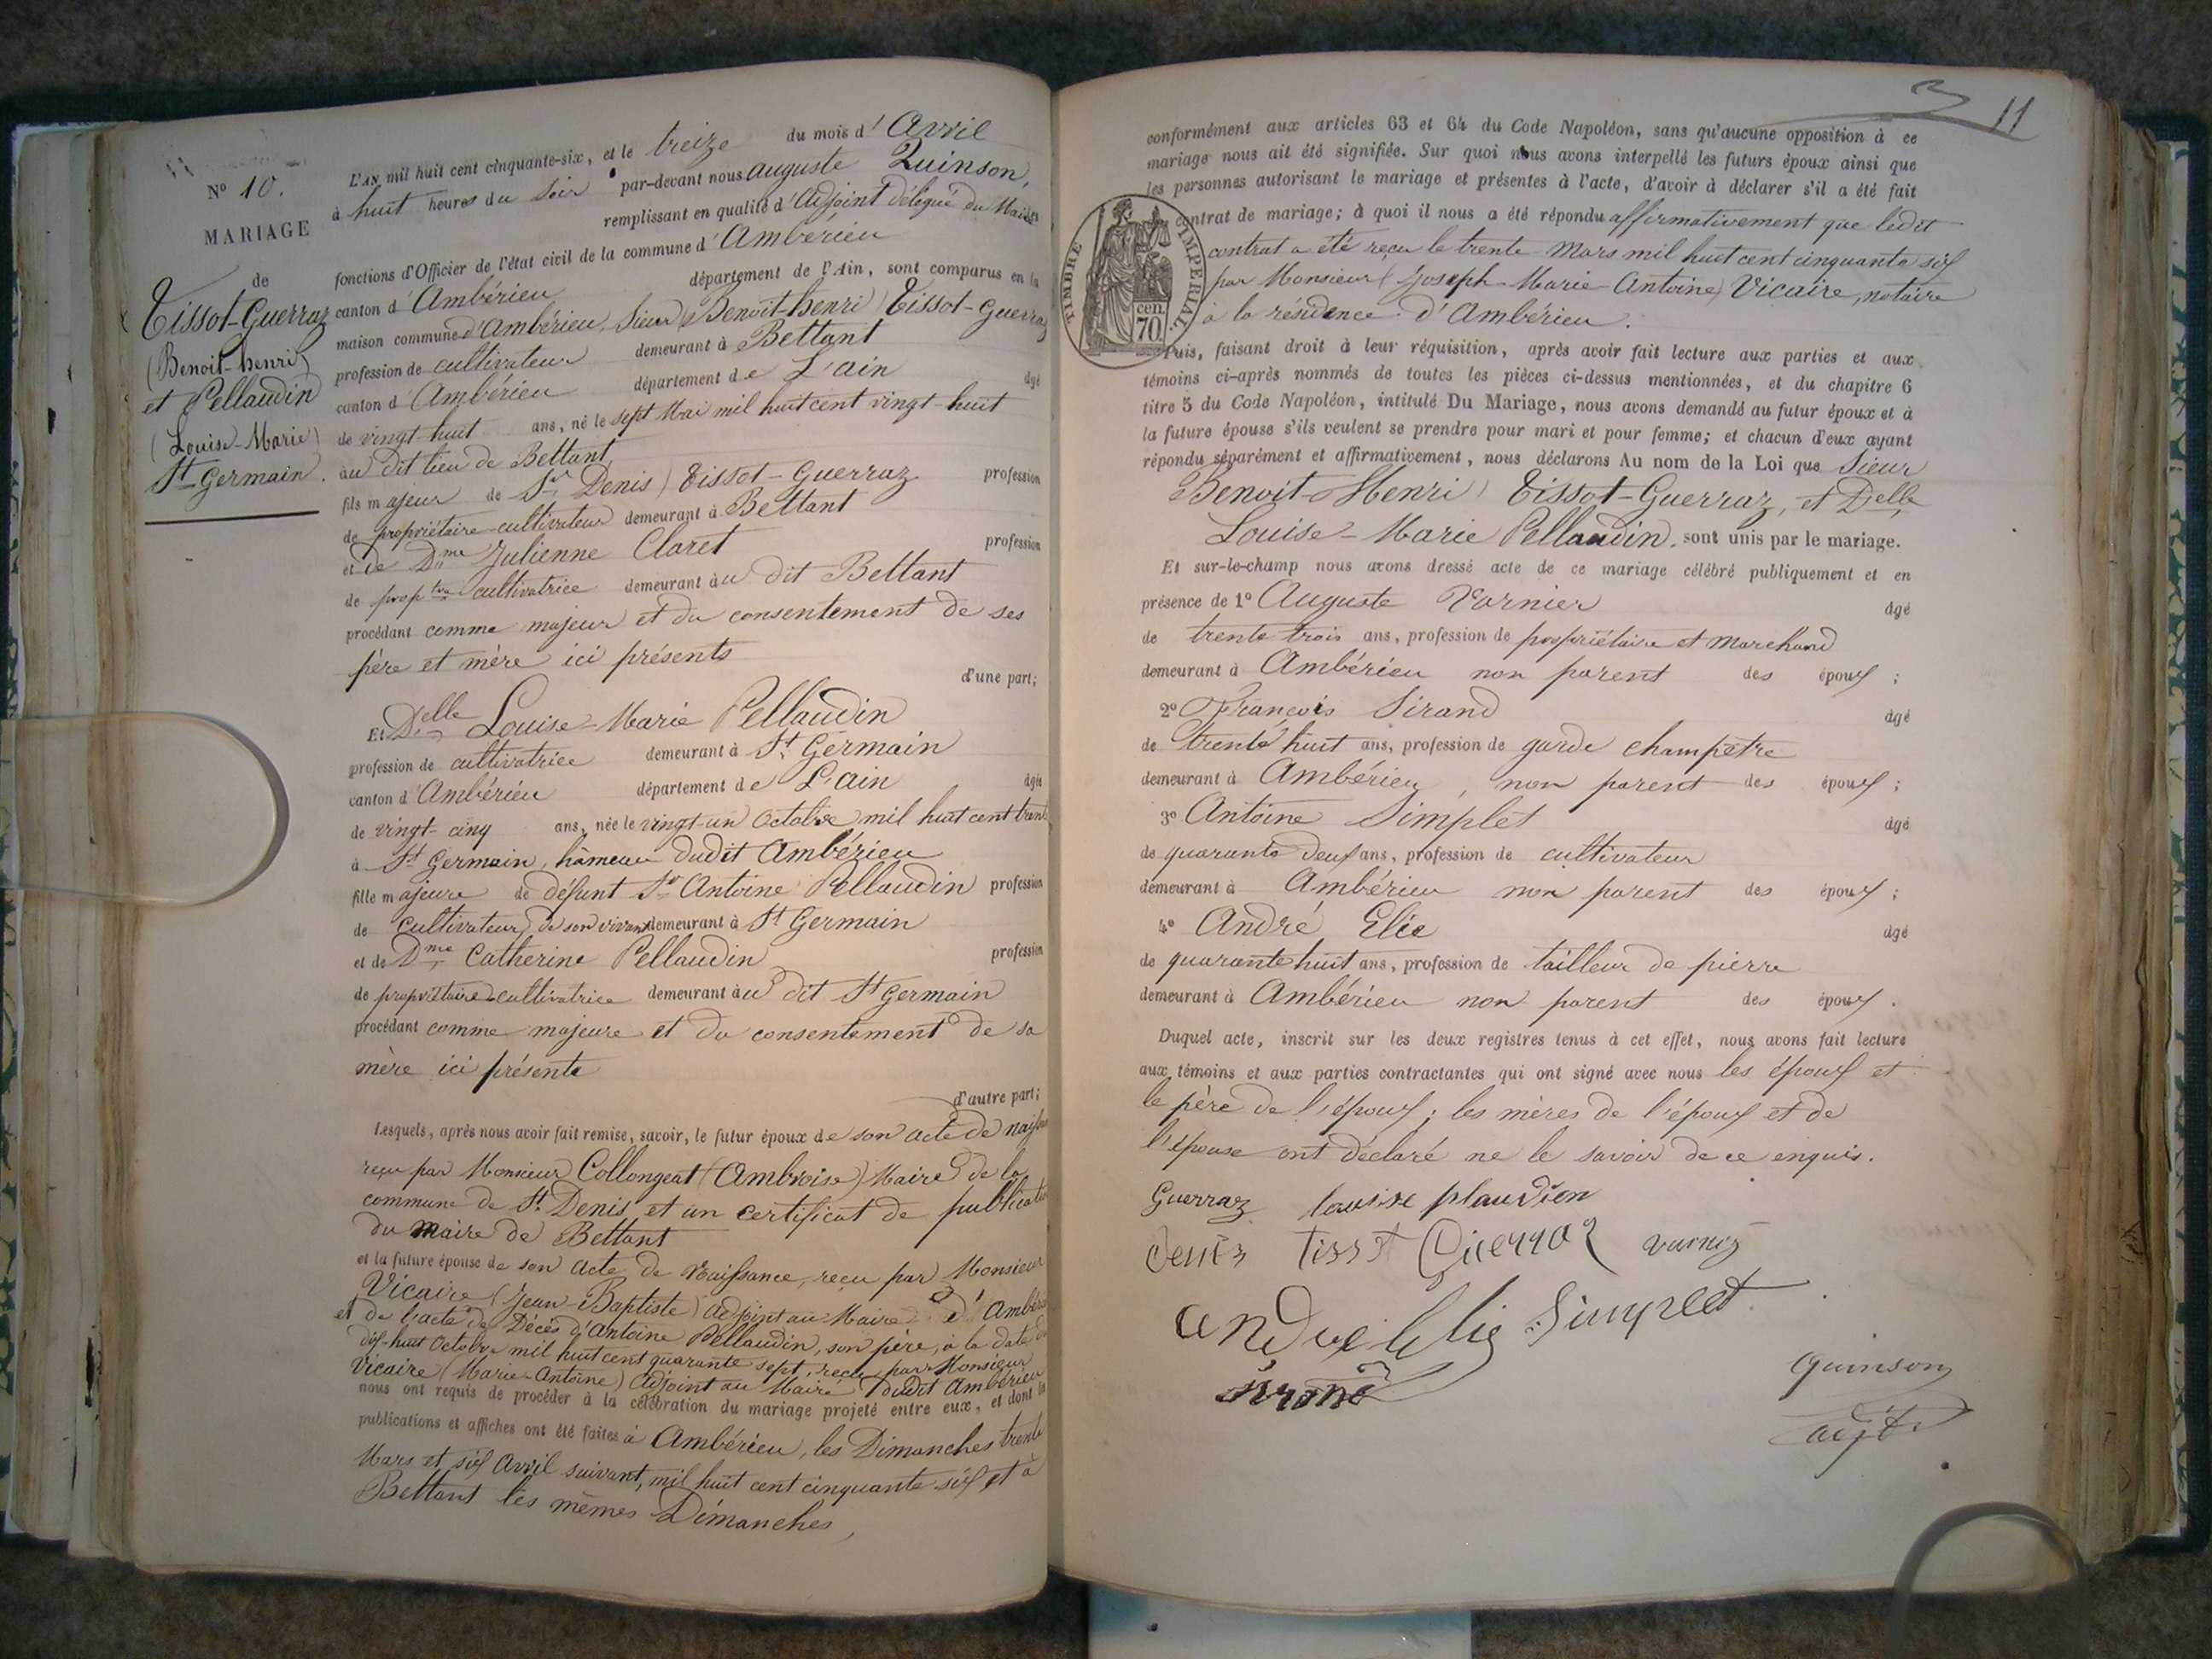 L'AN mil huit cent cinquante-six, et le treize du mois d'Avril
à huit heures du Soir par-devant nous auguste Quinson,
remplissant en qualité d'Adjoint délégué du Maire les
fonctions d'Officier de l'état civil de la commune d'Ambérieu
canton d'Ambérieu département de l'Ain, sont comparus en la
maison commune d'Ambérieu, Sieur (Benoît-henri) Tissot-Guerraz
profession de cultivateur demeurant à Bettant
canton d'Ambérieu département de L'ain âgé
de vingt-huit ans, né le sept Mai mil huit cent vingt-huit
au dit lieu de Bettant
fils majeur de Sr Denis) Tissot-Guerraz profession
de propriétaire-cultivateur demeurant à Bettant
et de Dme Julienne Claret profession
de proptre cultivatrice demeurant au dit Bettant
procédant comme majeur et du consentement de ses
père et mère ici présents
d'une part;
Et Delle Louise-Marie Pellaudin
profession de cultivatrice demeurant à St Germain
canton d'Ambérieu département de L'ain âgée
de vingt-cinq ans, née le vingt-un Octobre mil huit cent trente
à St Germain, hâmeau dudit Ambérieu
fille majeure de défunt Sr Antoine Pellaudin profession
de cultivateur, de son vivant demeurant à St Germain
et de Dme Catherine Pellaudin profession
de propriétaire cultivatrice demeurant au dit St Germain
procédant comme majeure et du consentement de sa
mère ici présente
d'autre part;
Lesquels, après nous avoir fait remise, savoir, le futur époux de son acte de naissance
reçu par Monsieur Collongeat (Ambroise) Maire de la
commune de St Denis et un certificat de publication
du maire de Bettant
et la future épouse de son acte de naissance, reçu par Monsieur
Vicaire (Jean-Baptiste) adjoint au Maire d'Ambérieu
et de l'acte de Décès d'Antoine Pellaudin, son père, à la date du
dix-huit Octobre mil huit cent quarante sept, reçu par Monsieur
Vicaire (Marie-Antoine) adjoint au Maire dudit Ambérieu
nous ont requis de procéder à la célébration du mariage projeté entre eux, et dont les
publications et affiches ont été faites à Ambérieu, les Dimanches trente
Mars et six Avril suivant, mil huit cent cinquante six et à
Bettant les mêmes Dimanches,
No 10.
MARIAGE
de
Tissot-Guerraz
(Benoit-henri)
et Pellaudin
(Louise-Marie)
St Germain.
11
conformément aux articles 63 et 64 du Code Napoléon, sans qu'aucune opposition à ce
mariage nous ait été signifiée. Sur quoi nous avons interpellé les futurs époux ainsi que
les personnes autorisant le mariage et présentes à l'acte, d'avoir à déclarer s'il a été fait
contrat de mariage; à quoi il nous a été répondu affirmativement que ledit
contrat a été reçu le trente Mars mil huit cent cinquante six
par Monsieur (Joseph-Marie-Antoine) Vicaire, notaire
à la résidence d'Ambérieu.
TIMBRE IMPERIAL
cen.
70
Puis, faisant droit à leur réquisition, après avoir fait lecture aux parties et aux
témoins ci-après nommés de toutes les pièces ci-dessus mentionnées, et du chapitre 6
titre 5 du Code Napoléon, intitulé Du Mariage, nous avons demandé au futur époux et à
la future épouse s'ils veulent se prendre pour mari et pour femme; et chacun d'eux ayant
répondu séparément et affirmativement, nous déclarons Au nom de la Loi que Sieur
Benoit-Henri) Tissot-Guerraz, et Delle
Louise-Marie Pellaudin, sont unis par le mariage.
Et sur-le-champ nous avons dressé acte de ce mariage célébré publiquement et en
présence de 1o Auguste Varnier âgé
de trente trois ans, profession de propriétaire et marchand
demeurant à Ambérieu non parent des époux ;
2o François Sirand âgé
de trente huit ans, profession de garde champêtre
demeurant à Ambérieu, non parent des époux ;
3o Antoine Simplet âgé
de quarante deux ans, profession de cultivateur
demeurant à Ambérieu non parent des époux ;
4o André Elie âgé
de quarante huit ans, profession de tailleur de pierre
demeurant à Ambérieu non parent des époux .
Duquel acte, inscrit sur les deux registres tenus à cet effet, nous avons fait lecture
aux témoins et aux parties contractantes qui ont signé avec nous les époux et
le père de l'époux; les mères de l'époux et de
l'épouse ont déclaré ne le savoir de ce enquis.
Guerraz louise plaudien
denis tissot Guerraz varnier
andre Elie Simplet
Sirand
quinson
adjt